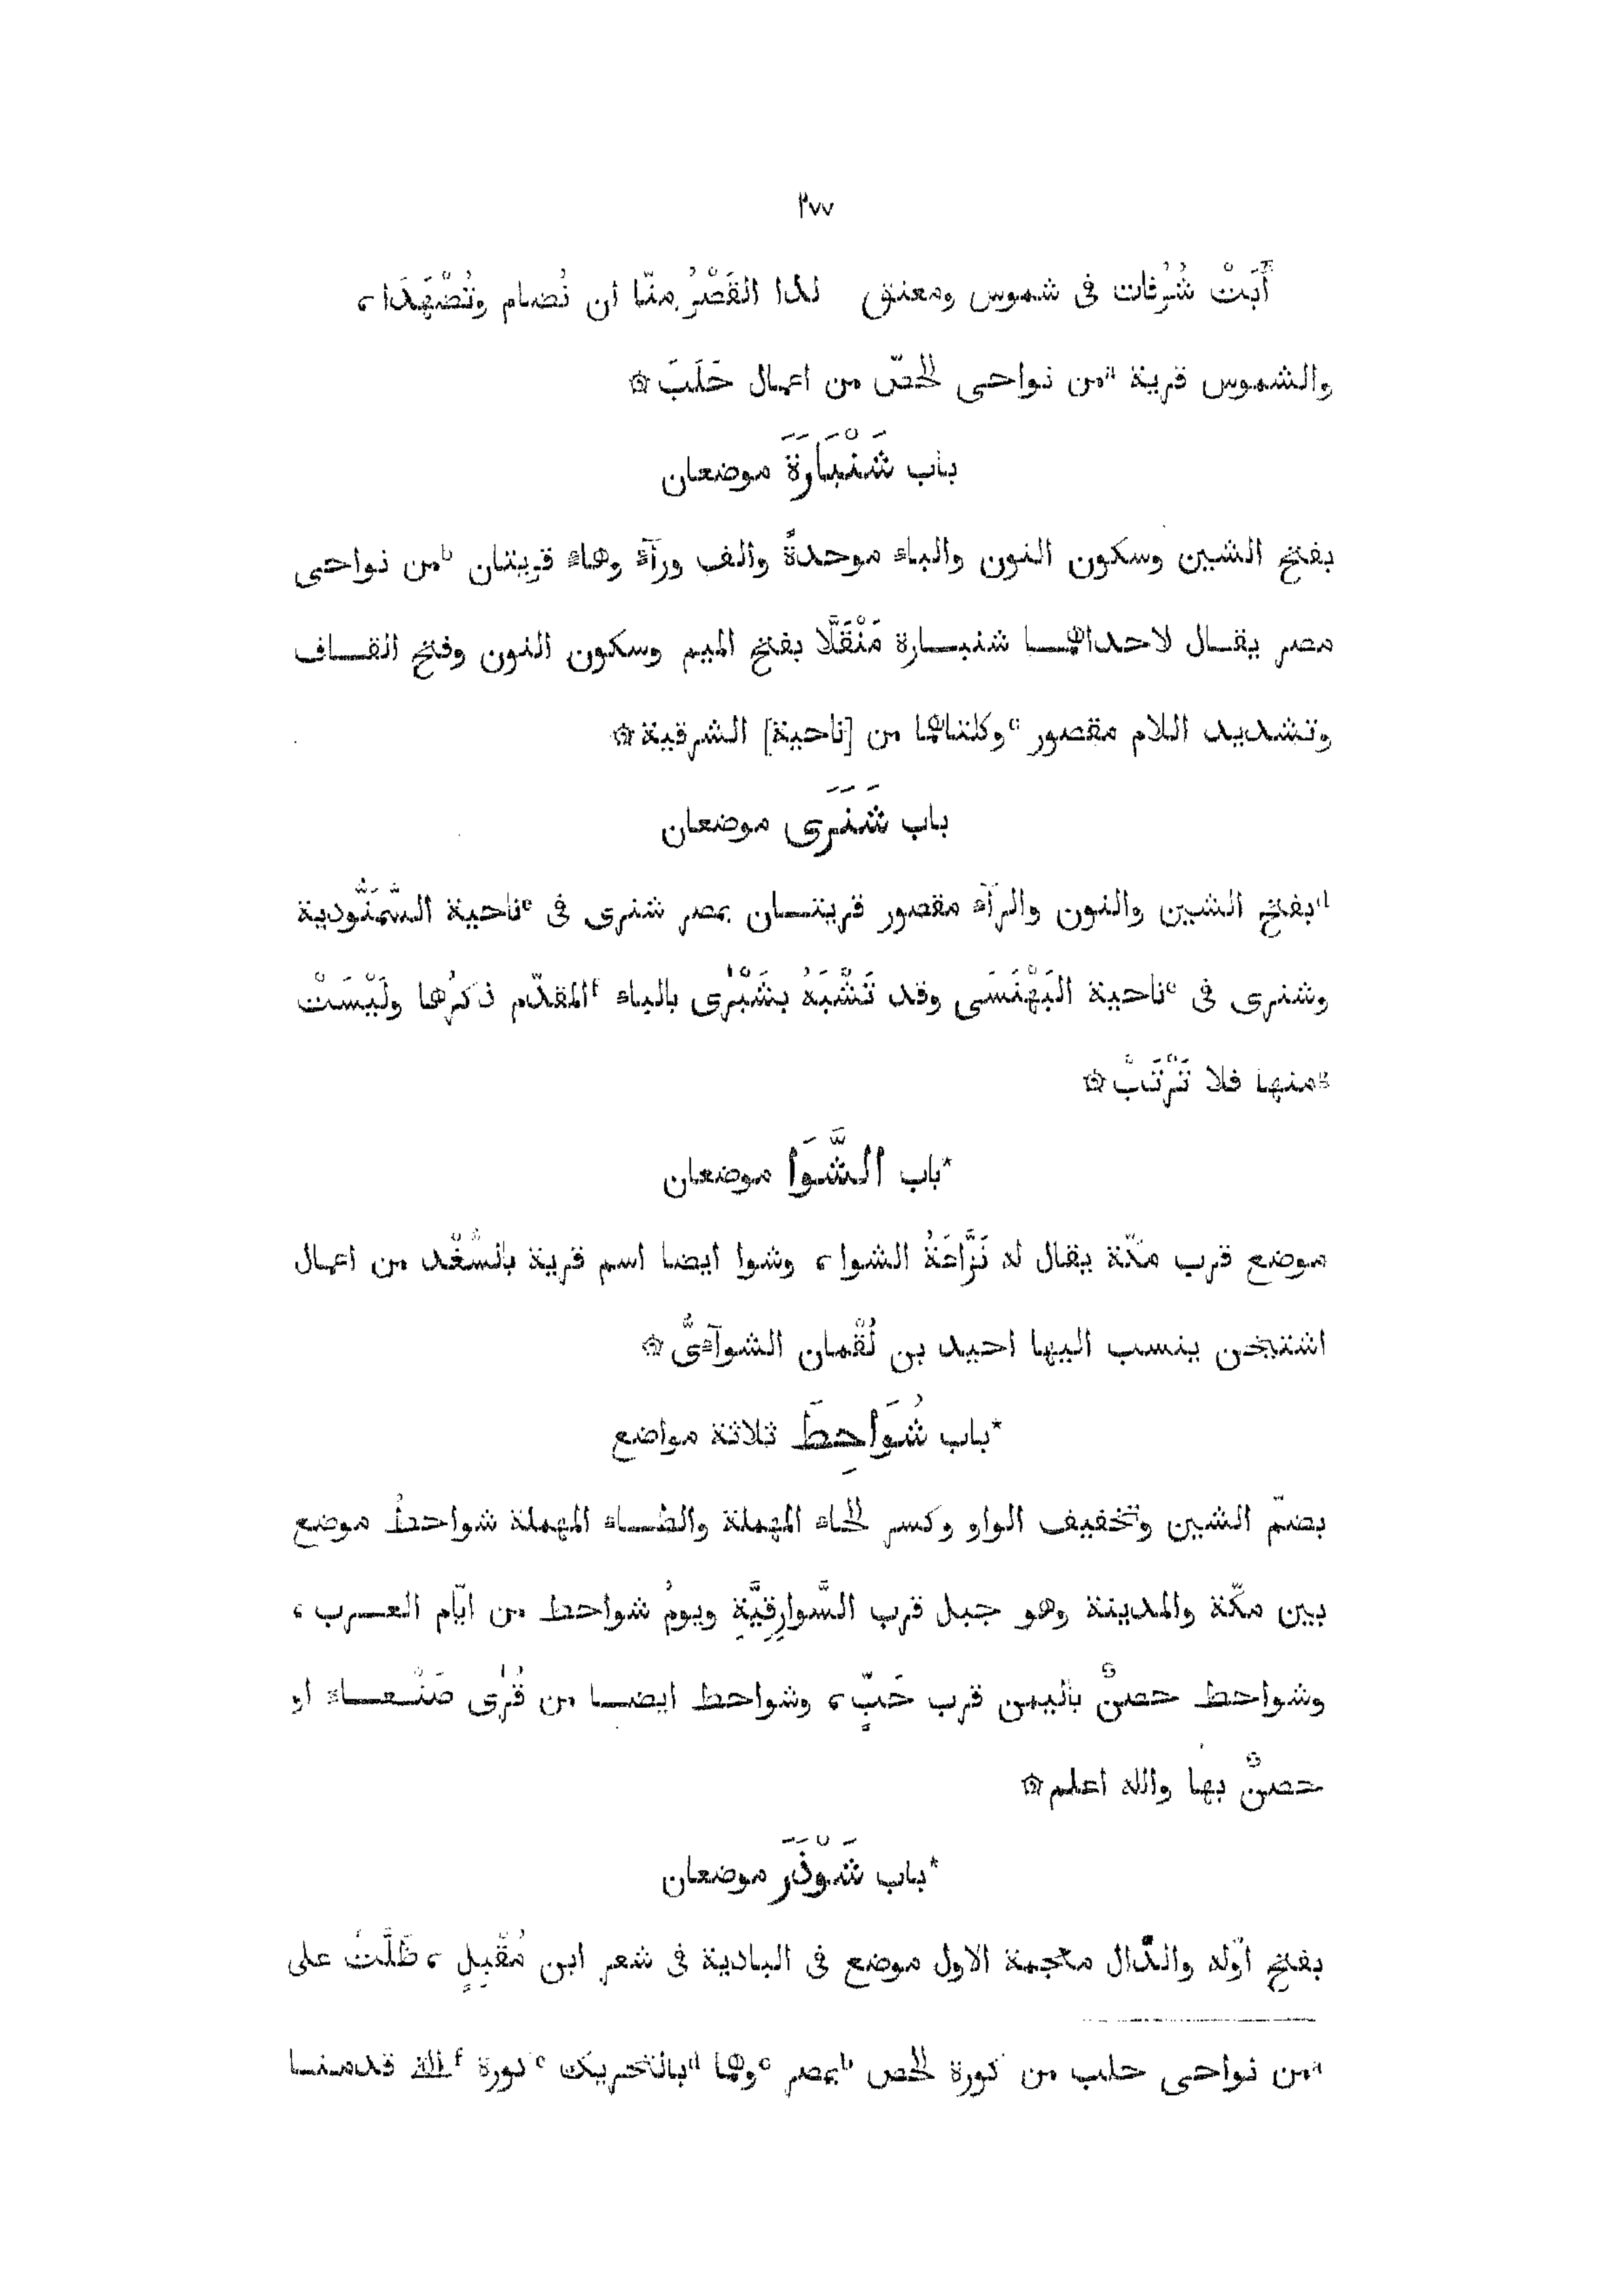 ٢٧٧
أَبَتْ شُرُفات فى شموس ومعنق لدا القَصْرُ منّا ان نُضام ونُضْهَدا ،
والشموس قرية ªمن نواحى الحصّ من اعمال حَلَبَ ۞
باب شَنْبَارَةَ موضعان
بفتح الشين وسكون النون والباء موحدةً والف ورآء وهاء قريتان ᵇمن نواحى
مصر يقال لاحداهما شنبارة مَنْقَلَّا بفتح الميم وسكون النون وفتح القاف
وتشديد اللام مقصور ᶜوكلتاهما من [ناحية] الشرقية ۞
باب شَنَرَى موضعان
ᵈبفتح الشين والنون والرآء مقصور قريتان بمصر شنرى فى ᵉناحية السَّمَنُّودية
وشنرى فى ᵉناحية البَهْنَسَى وقد تَشْبَهُ بشَبْرٰى بالباء ᶠالمقدّم ذكرُها ولَيْسَتْ
ᵍمنها فلا تَرْتَبْ ۞
*باب الشَّوَا موضعان
موضع قرب مكّة يقال له نَزَّاعَةُ الشوا ، وشوا ايضا اسم قرية بالسُّغْد من اعمال
اشتيخن ينسب اليها احيد بن لُقْمان الشوآءىُّ ۞
*باب شُوَاحِطَ ثلاثة مواضع
بضمّ الشين وتخفيف الواو وكسر الحاء المهملة والطاء المهملة شواحطُ موضع
بين مكّة والمدينة وهو جبل قرب السَّوارِقِيَّةِ ويومُ شواحط من ايّام العرب ،
وشواحط حصنٌ باليمن قرب حَبٍّ ، وشواحط ايضا من قُرٰى صَنْعاء او
حصنٌ بها والله اعلم ۞
*باب شَوْذَرَ موضعان
بفتح اوّله والذال معجمة الاول موضع فى البادية فى شعر ابن مُقْبِلٍ ، ظَلَّتْ على
ªمن نواحى حلب من كورة الحص ᵇبمصر ᶜوهما ᵈبالتحريك ᵉكورة ᶠالتى قدمنا